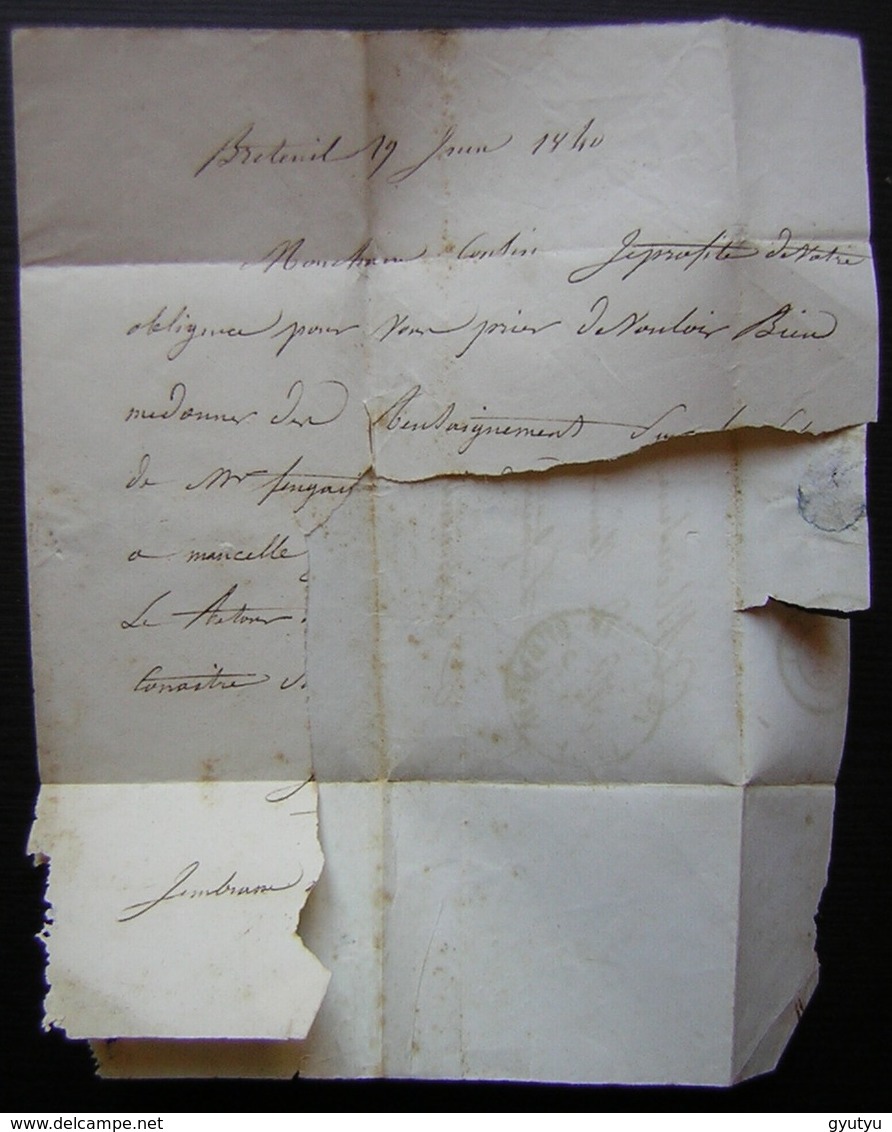 Breteuil 19 Juin 1840
Mon cher Jeprofite deVotre
obligence pour vous prier deVouloir Bien
medonner des Renseignement
de Mr
a mancelle
Le Retour
Conaitre
Jembrasse
Delcampe.net
gyutyu